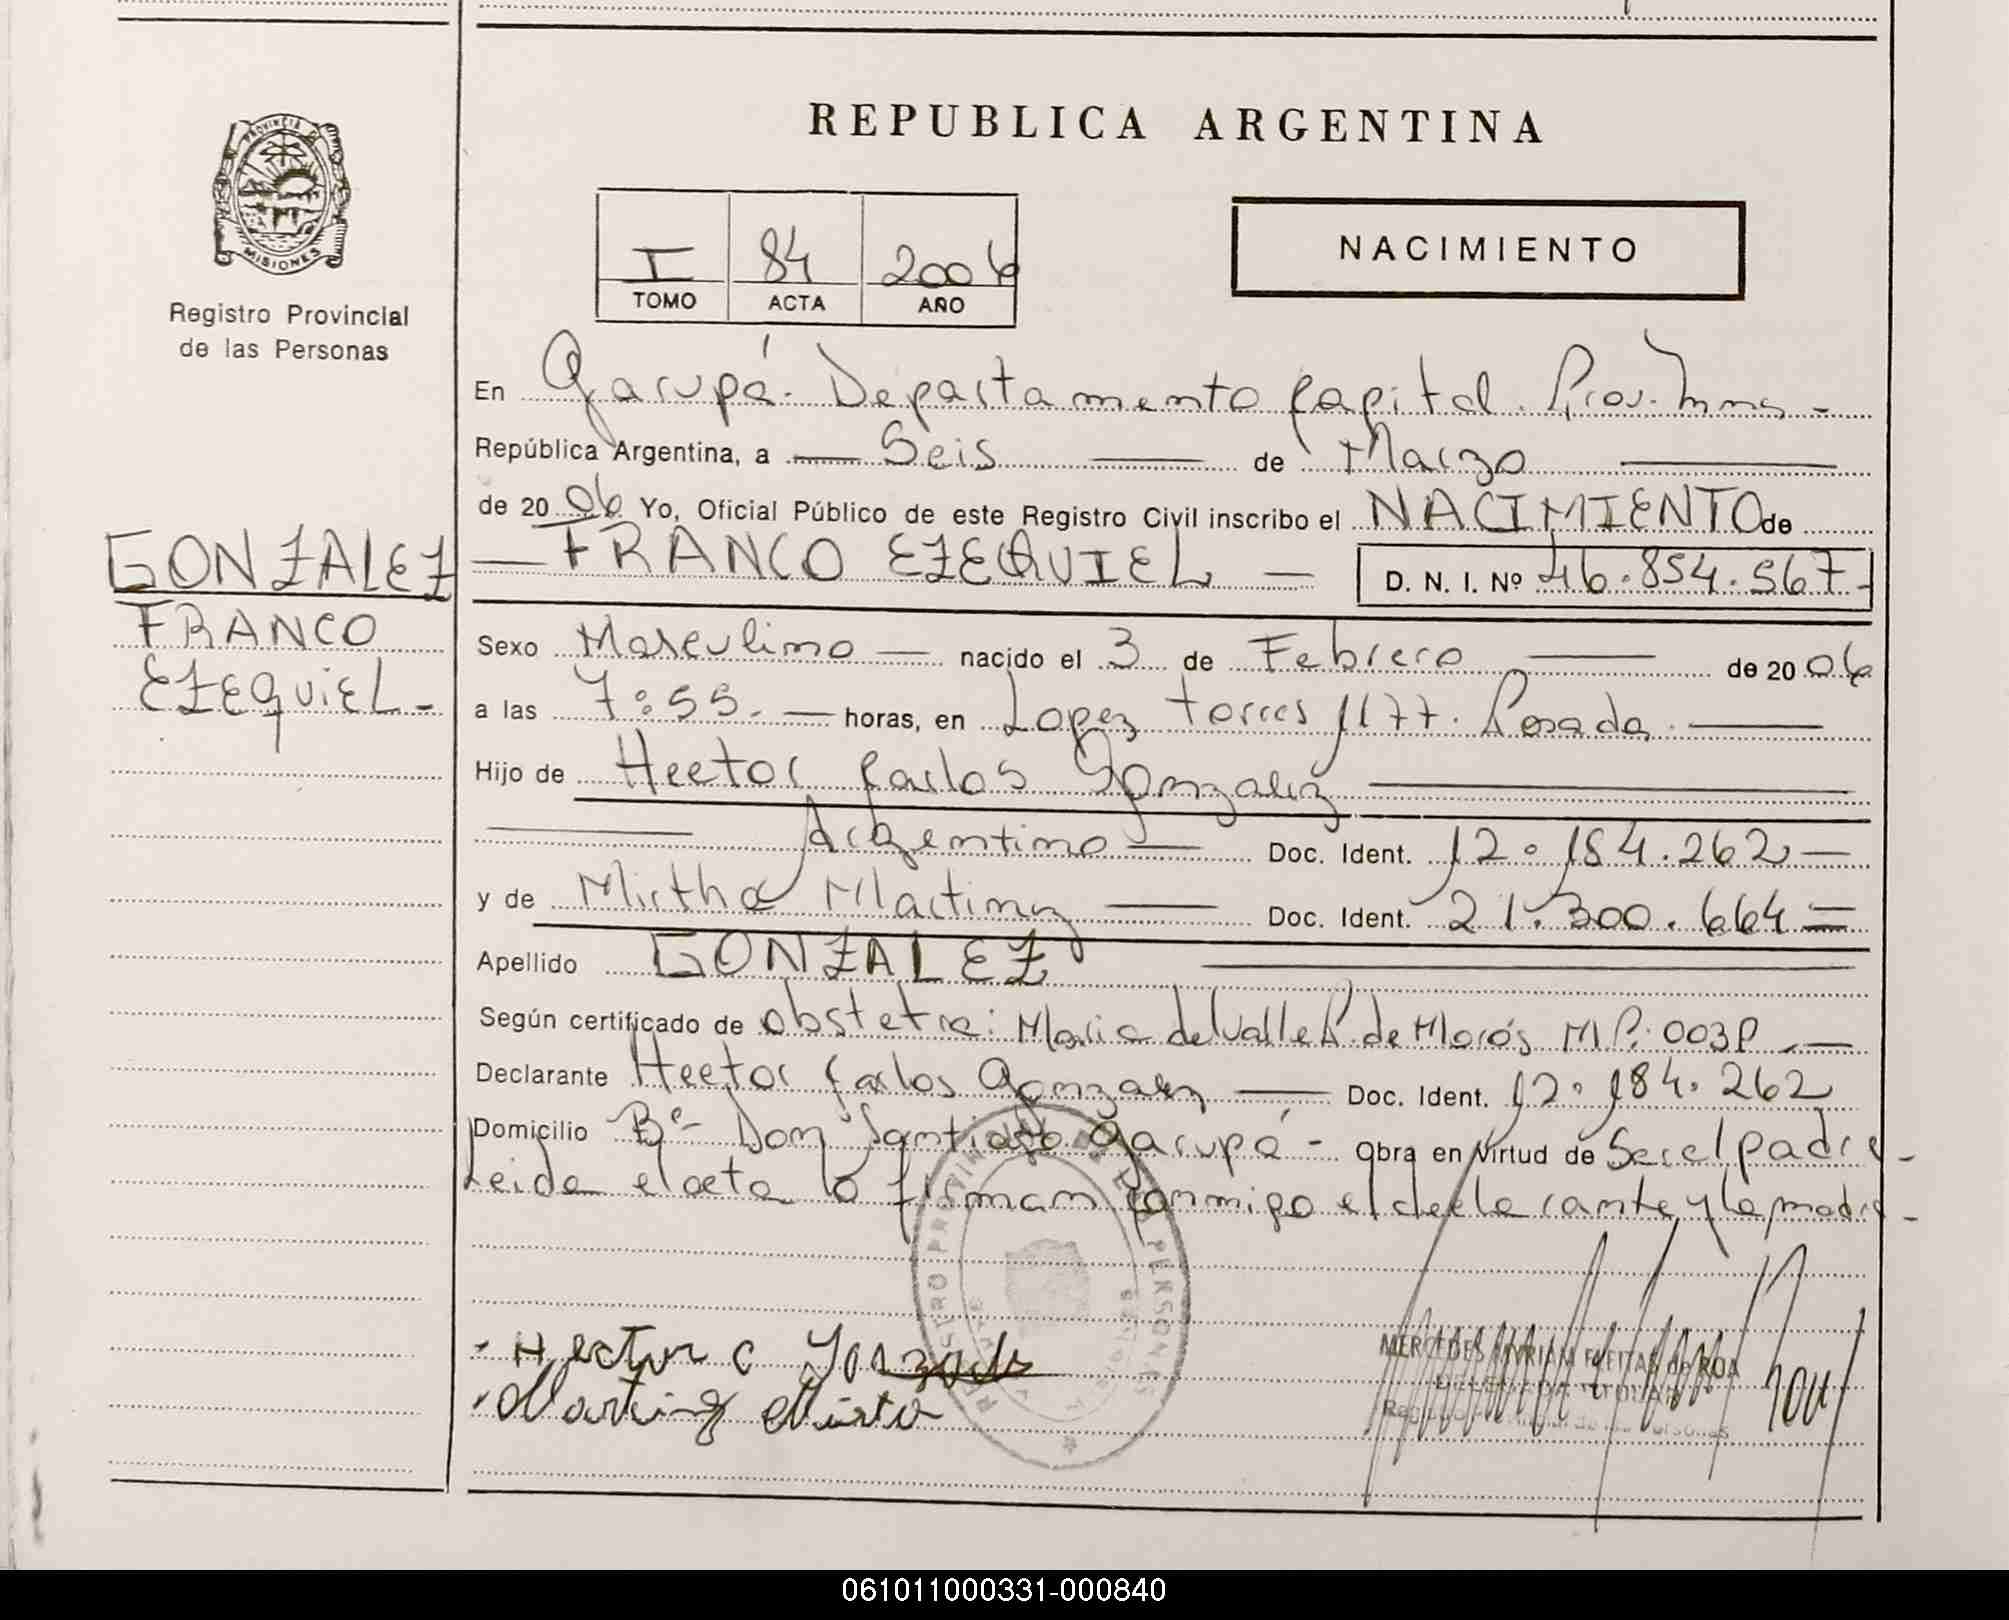 PROVINCIA DE
MISIONES
Registro Provincial
de las Personas
GONZALEZ
FRANCO
EZEQUIEL -
REPUBLICA ARGENTINA
I 84 2006
TOMO ACTA AÑO
NACIMIENTO
En Garupá - Departamento Capital. Prov. Mnes -
República Argentina, a — Seis — de Marzo —
de 20 06 Yo, Oficial Público de este Registro Civil inscribo el NACIMIENTO de
— FRANCO EZEQUIEL — D. N. I. Nº 46.854.567-
Sexo Masculino — nacido el 3 de Febrero — de 20 06
a las 7:55. — horas, en Lopez Torres 1177. Posadas. —
Hijo de Hector Carlos Gonzalez —
— Argentino — Doc. Ident. 12.184.262 —
y de Mirtha Martinez — Doc. Ident. 21.300.664 =
Apellido GONZALEZ —
Según certificado de obstetra: Maria del Valle P. de Morós MP. 003P —
Declarante Hector Carlos Gonzalez — Doc. Ident. 12.184.262
Domicilio Bº - Don Santiago Garupá - Obra en Virtud de Ser el padre -
Leida el acta lo firman conmigo el declarante y la madre -
REGISTRO PROVINCIAL DE LAS PERSONAS
- Hector C Gonzalez
- Martinez Mirta
MERCEDES MYRIAM FREITAS de ROA
DELEGADA TITULAR
Registro Provincial de las Personas
061011000331-000840